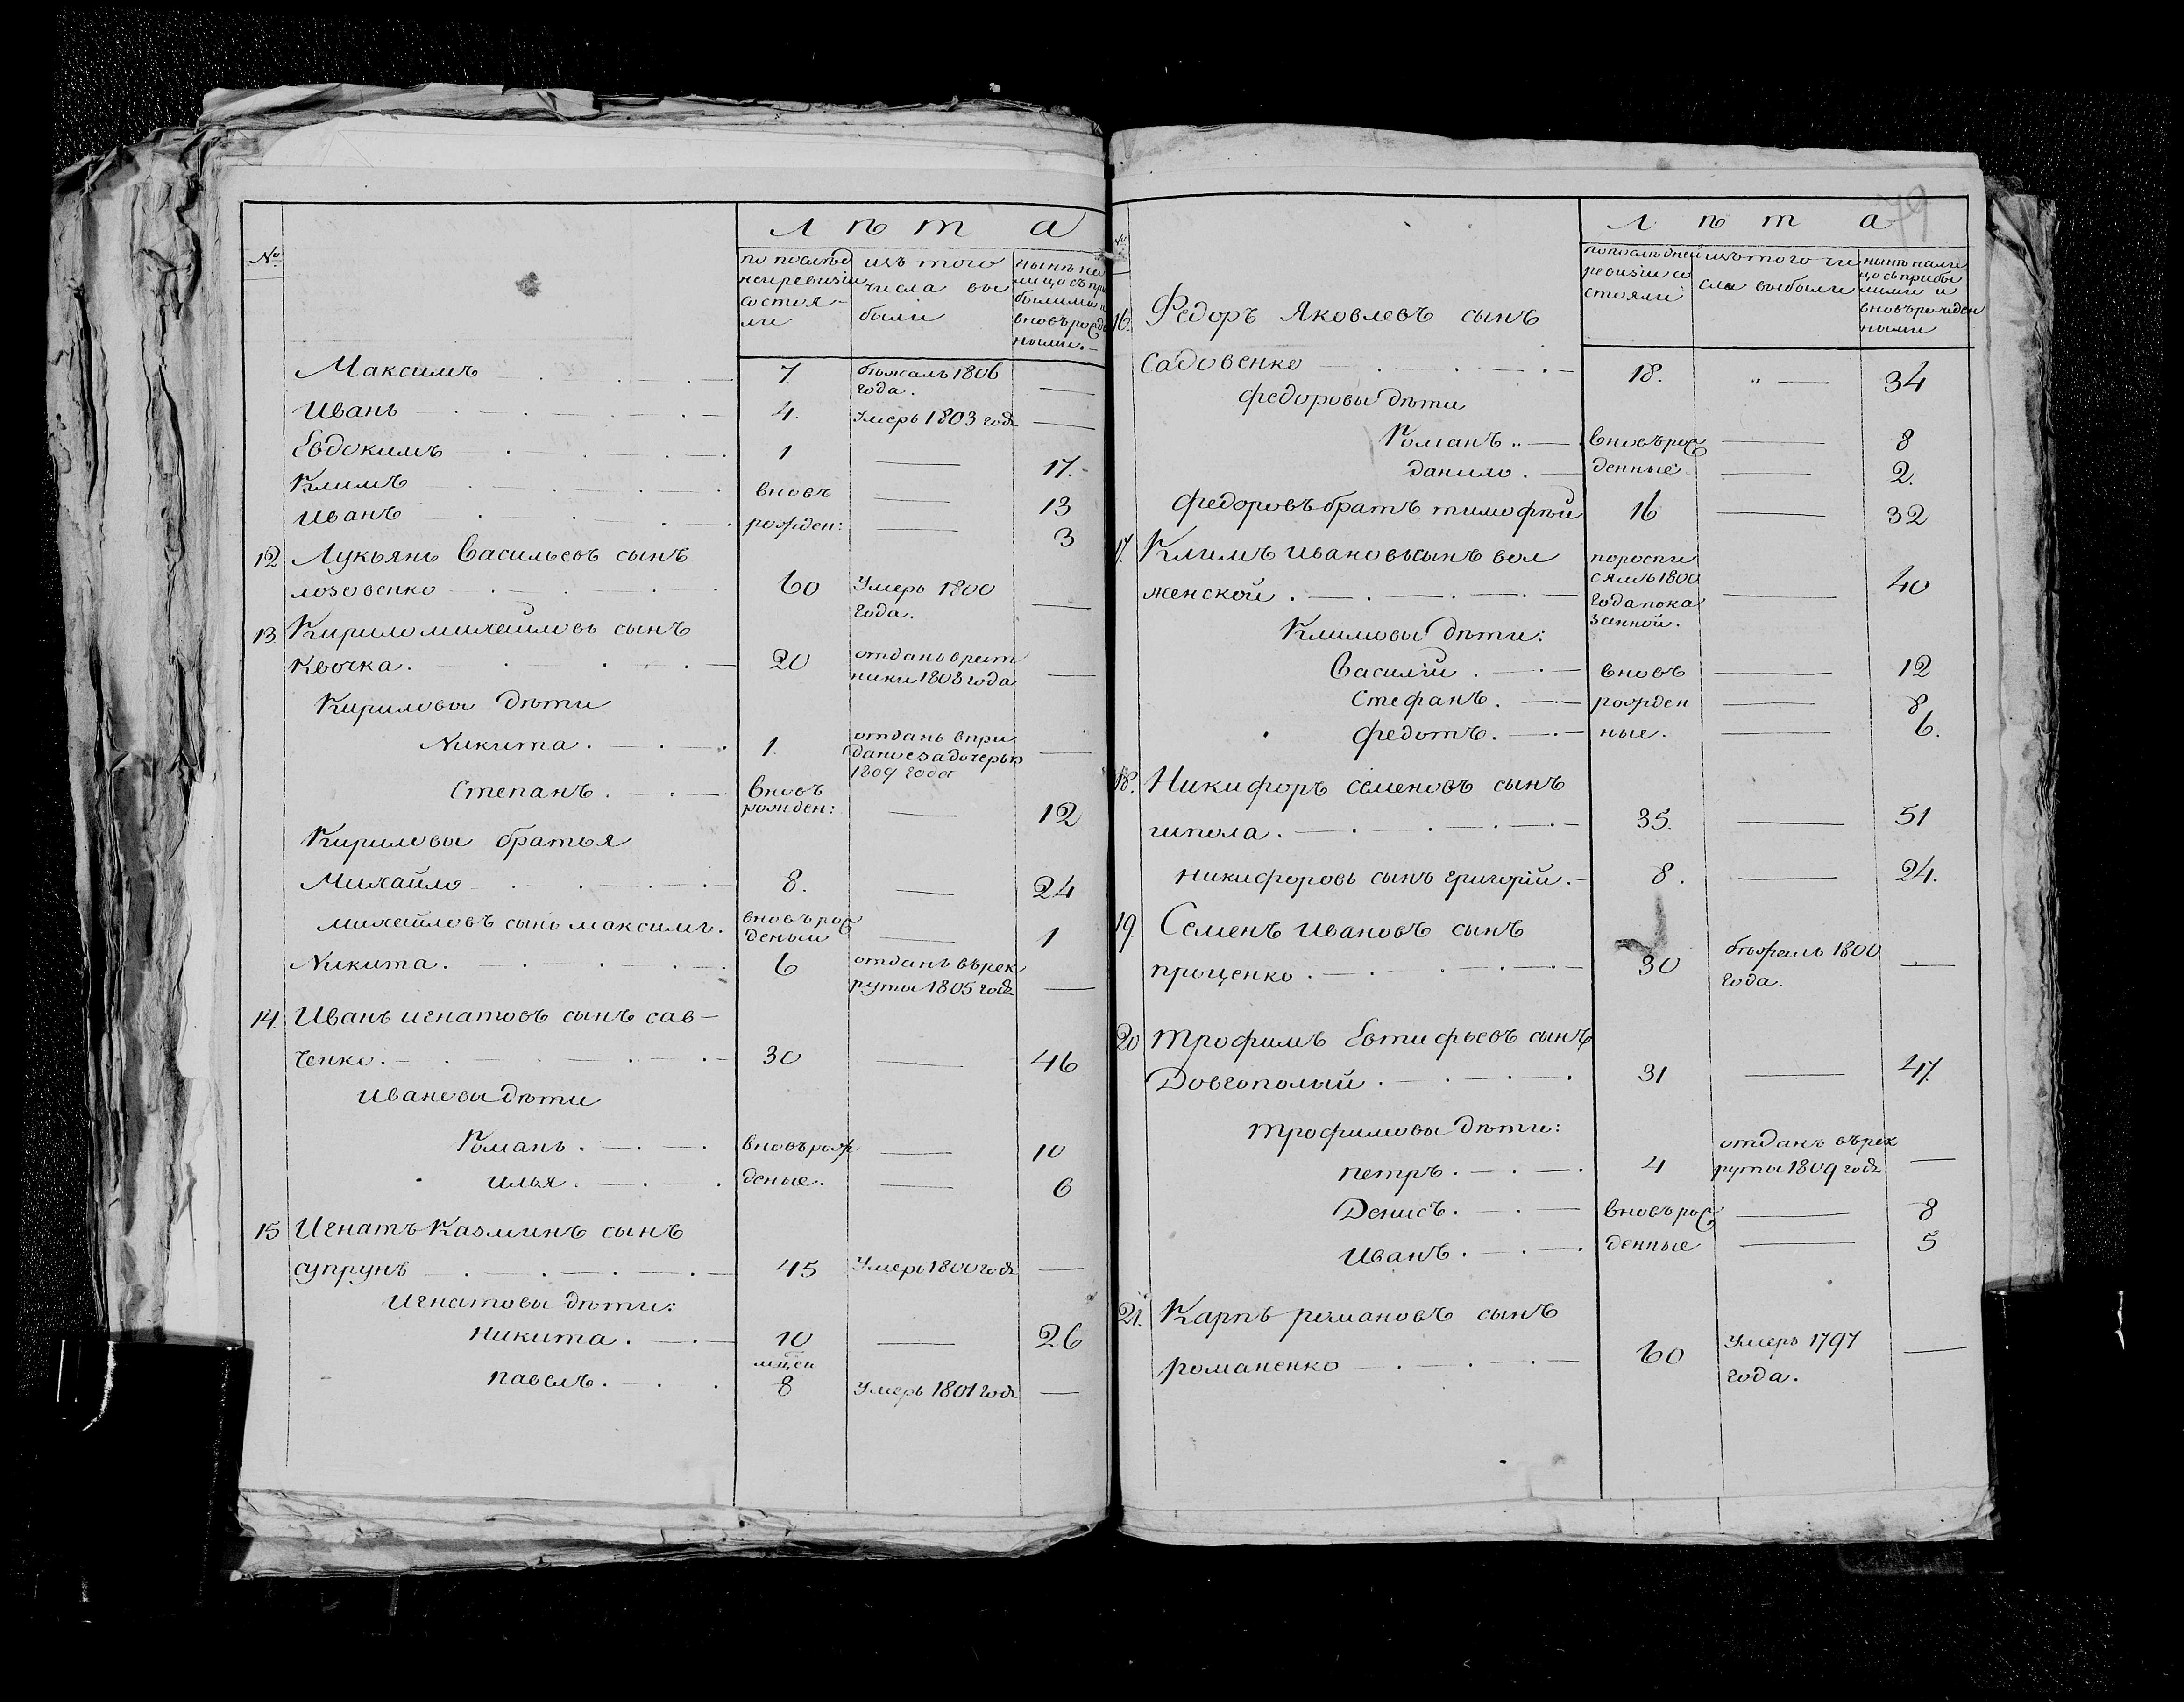 №
Лѣта
по послѣд
ней ревизiи
состоя-
ли
изъ того
числа вы
были
нынѣ на
лицо съ при
былыми и
вновь рожд
ными.
Максимъ 7. бѣжалъ 1806
года. —
Иванъ 4. Умеръ 1803 года —
Евдокимъ 1 — 17.
Климъ вновь — 13
Иванъ рожден: — 3
12 Лукьянъ Васильевъ сынъ
лозовенко 60 Умеръ 1800
года. —
13 Кирило михайловъ сынъ
Квочка. 20 отданъ врат
ники 1808 года —
Кириловы дѣти
Никита. 1. отданъ впри
даное за дочерью
1809 года —
Степанъ. вновь
рожден: — 12
Кириловы братья
Михайло 8. — 24
михайловъ сынъ максимъ. вновь рож
деный — 1
Никита. 6 отданъ въ рек
руты 1805 года —
14. Иванъ игнатовъ сынъ сав-
ченко. 30 — 46
Ивановы дѣти
Романъ. вновь рож — 10
илья. деные. — 6
15 Игнатъ Казминъ сынъ
супрунъ 45 Умеръ 1800 года —
Игнатовы дѣти:
Никита. 10 — 26
павелъ. мцеи
8 Умеръ 1801 года —
79
№
Лѣта
по послѣдней
ревизiи со
стояли
изъ того чи
сла выбыли
нынѣ нали
цо съ прибы
лыми и
вновь рожден
ными
16. Федоръ Яковлевъ сынъ
садовенко 18. „ — 34
федоровы дѣти
Романъ.. вновь рож — 8
данило. денные — 2.
федоровъ братъ тимофѣй 16 — 32
17. Климъ ивановъ сынъ вол
женской. по роспи
сямъ 1800
года пока
занной. — 40
Климовы дѣти:
Василiй. вновь — 12
Стефанъ. рожден — 8
федотъ. ные. — 6.
18. Никифоръ семеновъ сынъ
гипола. 35. — 51
никифоровъ сынъ григорiй. 8. — 24.
19. Семенъ ивановъ сынъ
проценко. 30 бѣжалъ 1800
года. —
20 Трофимъ Евтифьевъ сынъ
Довгополый. 31 — 47.
трофимовы дѣти:
петръ. 4 отданъ въ рек
руты 1809 года —
Денисъ. вновь рож — 8
Иванъ. денные — 5
21. Карпъ романовъ сынъ
романенко 60 Умеръ 1797
года. —